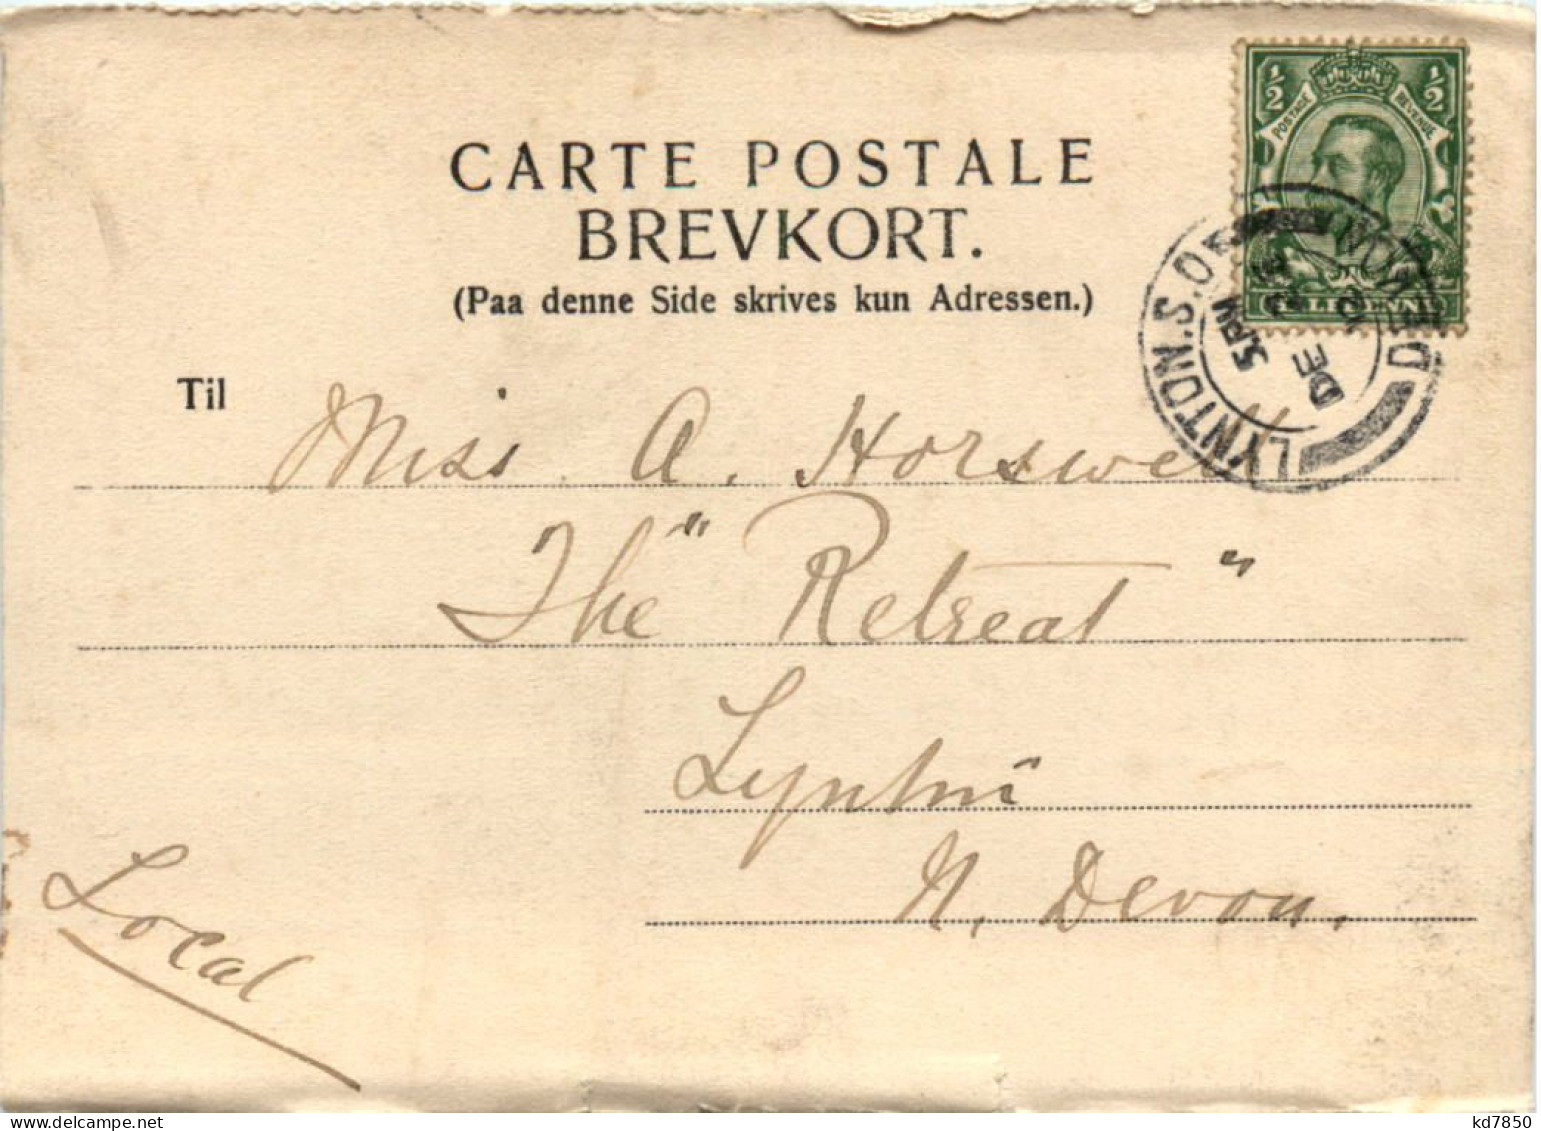 CARTE POSTALE
BREVKORT.
(Paa denne Side skrives kun Adressen.)
½ ½
POSTAGE REVENUE
LYNTON.S.O
DEVON
5.PM
DE
Til
Miss A. Horswell
The "Retreat"
Lynton
N. Devon.
Local
kd7850